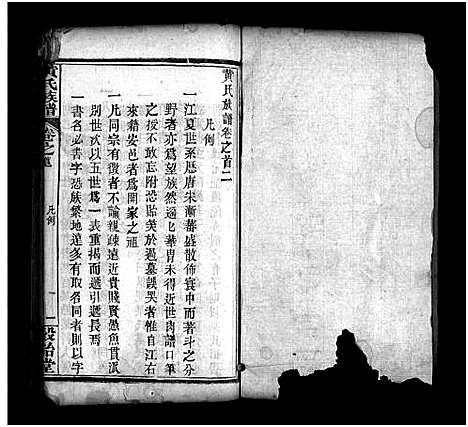 黄氏族譜卷之首二
凡例
一江夏世系歷唐宋漸蕃盛散佈寰中而著斗之分
野者亦為望族然遥遥華胄未得近世肉譜口筆
之後不敢忘附恐貽笑於過墓誤哭者惟自江右
來籍安邑者為開家之祖
一凡同宗有徵者不論親疎遠近貴賤賢愚魚貫汎
別世次以五世為一表重揭而遞引遞長焉
一書名必書字恐族繁地遠多有取名同者則以字
黄氏族譜
卷之首
凡例
一